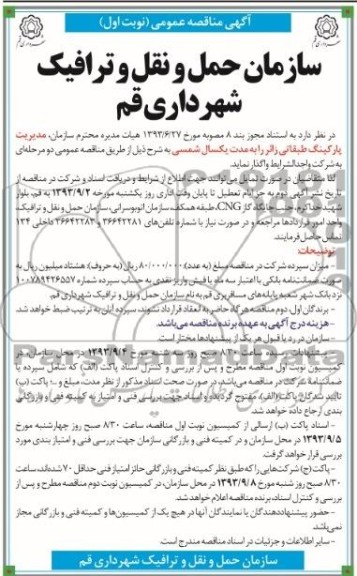 آگهی مناقصه عمومی (نوبت اول)
سازمان حمل و نقل و ترافیک
شهرداری قم
در نظر دارد به استناد مجوز بند ۸ مصوبه مورخ ۱۳۹۳/۶/۲۷ هیات مدیره محترم سازمان، مدیریت
پارکینگ طبقاتی زائر را به مدت یکسال شمسی به شرح ذیل از طریق مناقصه عمومی دو مرحله‌ای
به شرکت واجدالشرایط واگذار نماید.
لذا متقاضیان در صورت تمایل می‌توانند جهت اطلاع از شرایط و دریافت اسناد و شرکت در مناقصه از
تاریخ نشر آگهی دوم به جز ایام تعطیل تا پایان وقت اداری روز یکشنبه مورخه ۱۳۹۳/۹/۲ به قم، بلوار
شهید خداکرم، جنب جایگاه گاز CNG، طبقه همکف سازمان اتوبوسرانی، سازمان حمل و نقل و ترافیک
واحد امور قراردادها مراجعه و در صورت نیاز با شماره تلفن‌های ۳۶۶۴۲۲۸۱ و ۳۶۶۴۲۲۸۳ داخلی ۱۲۴
تماس حاصل فرمایند.
توضیحات:
- میزان سپرده شرکت در مناقصه مبلغ (به عدد): ۸۰/۰۰۰/۰۰۰ ریال (به حروف): هشتاد میلیون ریال به
صورت ضمانتنامه بانکی با اعتبار سه ماه یا فیش واریز نقدی به حساب سپرده شماره ۱۰۰۷۸۹۴۲۶۵۵۷
نزد بانک شهر شعبه پایانه‌های مسافربری قم به نام سازمان حمل و نقل و ترافیک شهرداری قم
- برندگان اول، دوم مناقصه هرگاه حاضر به انعقاد قرارداد نشوند، سپرده آنان به ترتیب ضبط خواهد شد.
- هزینه درج آگهی به عهده برنده مناقصه می‌باشد.
- سازمان در رد یا قبول هر یک از پیشنهادها مختار است.
- پیشنهادات رسیده ساعت ۸/۳۰ صبح روز سه شنبه مورخ ۱۳۹۳/۹/۴ در محل سازمان، در
کمیسیون نوبت اول مناقصه مطرح و پس از بررسی و کنترل اسناد پاکت (الف) که شامل سپرده یا
ضمانتنامه شرکت در مناقصه می‌باشد، در صورت صحت اسناد مذکور از نظر مدت، مبلغ و ... پاکت (ب)
تایید شدگان پاکت (الف)، مفتوح گردیده و اسناد جهت بررسی فنی و امتیاز به کمیته فنی و بازرگانی
ارجاع داده خواهد شد.
- اسناد پاکت (ب) ارسالی از کمیسیون نوبت اول مناقصه، ساعت ۸/۳۰ صبح روز چهارشنبه مورخ
۱۳۹۳/۹/۵ در محل سازمان و در کمیته فنی و بازرگانی سازمان جهت بررسی فنی و امتیاز بندی مورد
بررسی قرار خواهد گرفت.
- پاکت (ج) شرکت‌هایی را که طبق نظر کمیته فنی و بازرگانی حائز امتیاز فنی حداقل ۷۰ شده‌اند، ساعت
۸/۳۰ صبح روز شنبه مورخ ۱۳۹۳/۹/۸ در محل سازمان، در کمیسیون نوبت دوم مناقصه مطرح و پس از
بررسی و کنترل اسناد، برنده مناقصه اعلام خواهد شد.
- حضور پیشنهاددهندگان یا نمایندگان آنها در هیچ یک از کمیسیون‌ها و کمیته فنی و بازرگانی مجاز
نمی‌باشد.
- سایر اطلاعات و جزئیات در اسناد مناقصه مندرج است.
سازمان حمل و نقل و ترافیک شهرداری قم